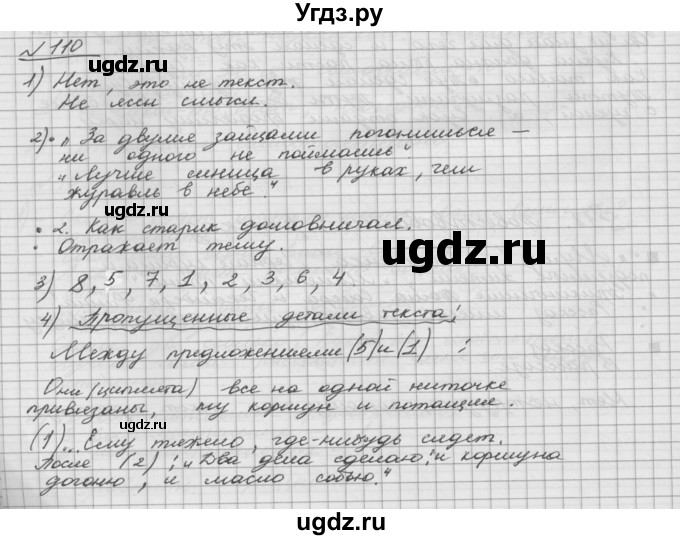 Угдз.ру
№ 110
1) Нет, это не текст.
Не ясен смысл.
2) • „За двумя зайцами погонишься –
ни одного не поймаешь“.
„Лучше синица в руках, чем
журавль в небе.“
• 2. Как старик домовничал.
• Отражает тему.
3) 8, 5, 7, 1, 2, 3, 6, 4
4) Пропущенные детали текста:
Между предложениями (5) и (1) :
Они (цыплята) все на одной ниточке
привязаны, ту коршун и потащил.
(1)... Ему тяжело, где-нибудь сядет.
После (2) : „Два дела сделаю: и коршуна
догоню, и масло собью.“
ugdz.ru
ugdz.ru
ugdz.ru
ugdz.ru
ugdz.ru
ugdz.ru
ugdz.ru
ugdz.ru
ugdz.ru